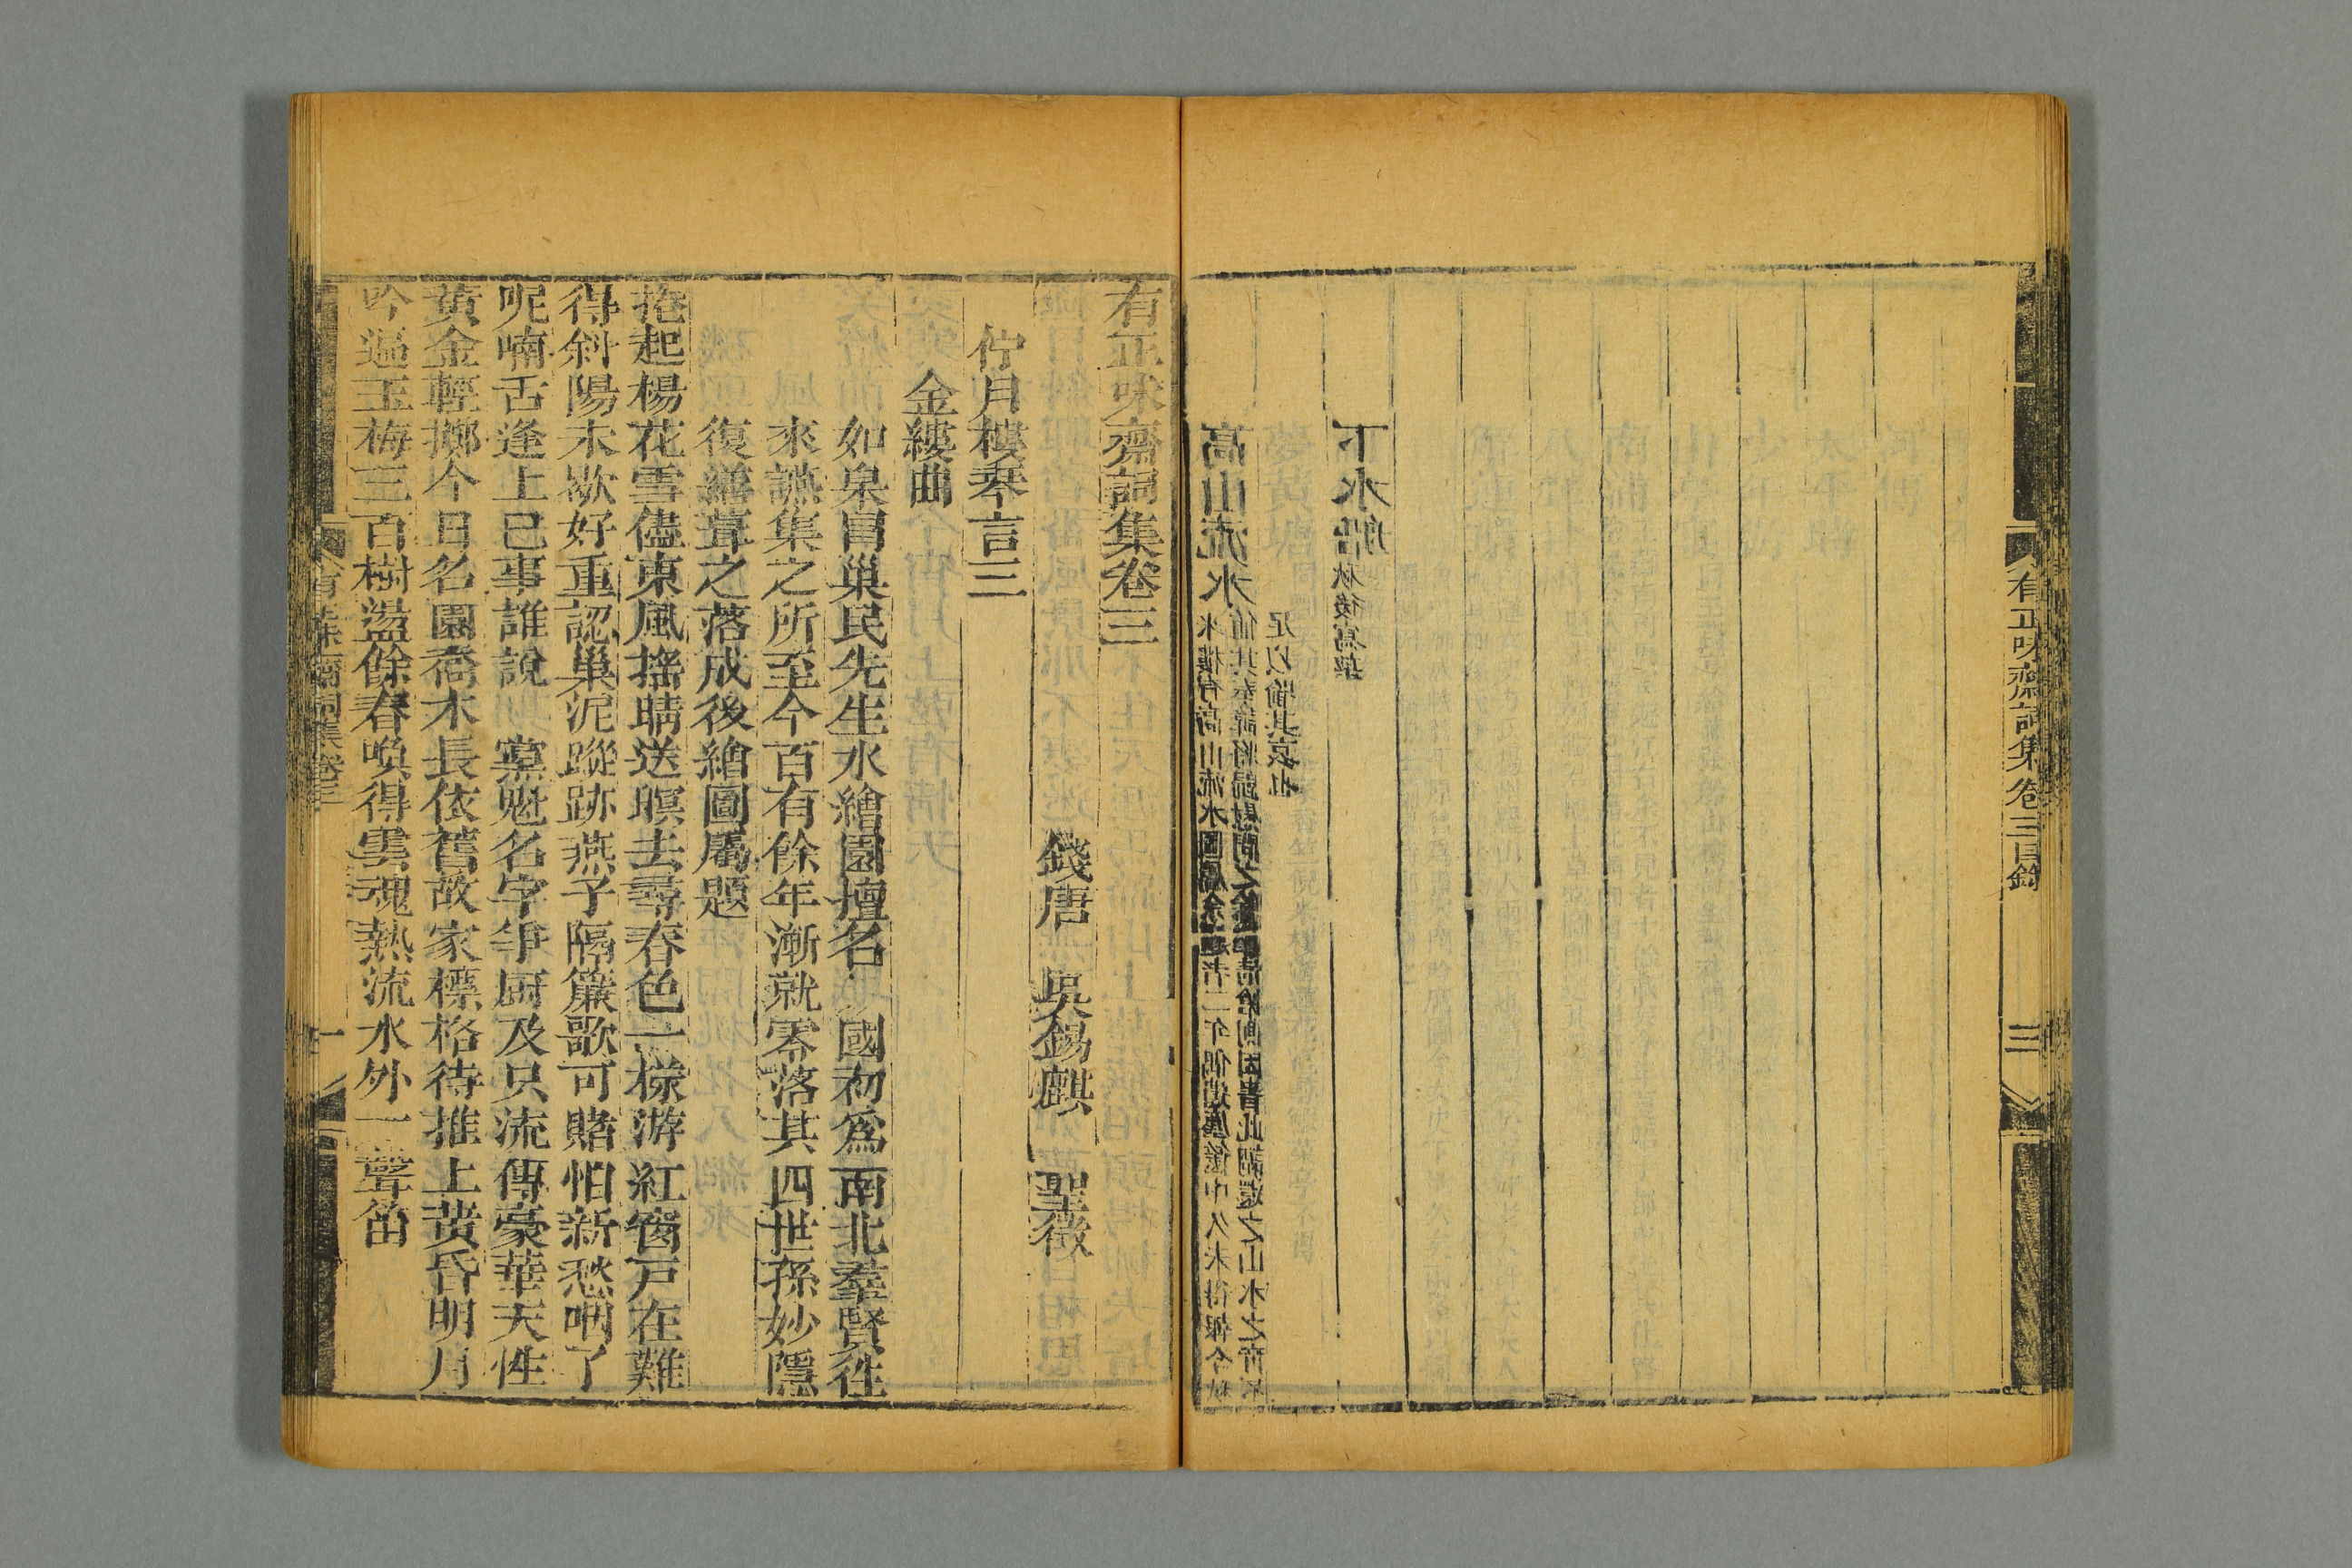 有正味齋詞集卷三目錄 三
下水船
高山流水
有正味齋詞集卷三
錢唐 吳錫麒 聖徵
佇月樓琴言三
金縷曲
如臯冒巢民先生水繪園擅名 國初爲南北羣賢徃
來讌集之所至今百有餘年漸就零落其四世孫妙隱
復繕葺之落成後繪圖屬題
捲起楊花雪儘東風搖晴送暝去尋春色一樣游紅窗戸在難
得斜陽未歇好重認巢泥蹤跡燕子隔簾歌可賭怕新愁咽了
呢喃舌逢上巳事誰說 黨魁名字爭厨及只流傳豪華天性
黃金輕擲今日名園喬木長依舊故家標格待推上黃昏明月
吟遍玉梅三百樹盪餘春喚得雲魂熱流水外一聲笛